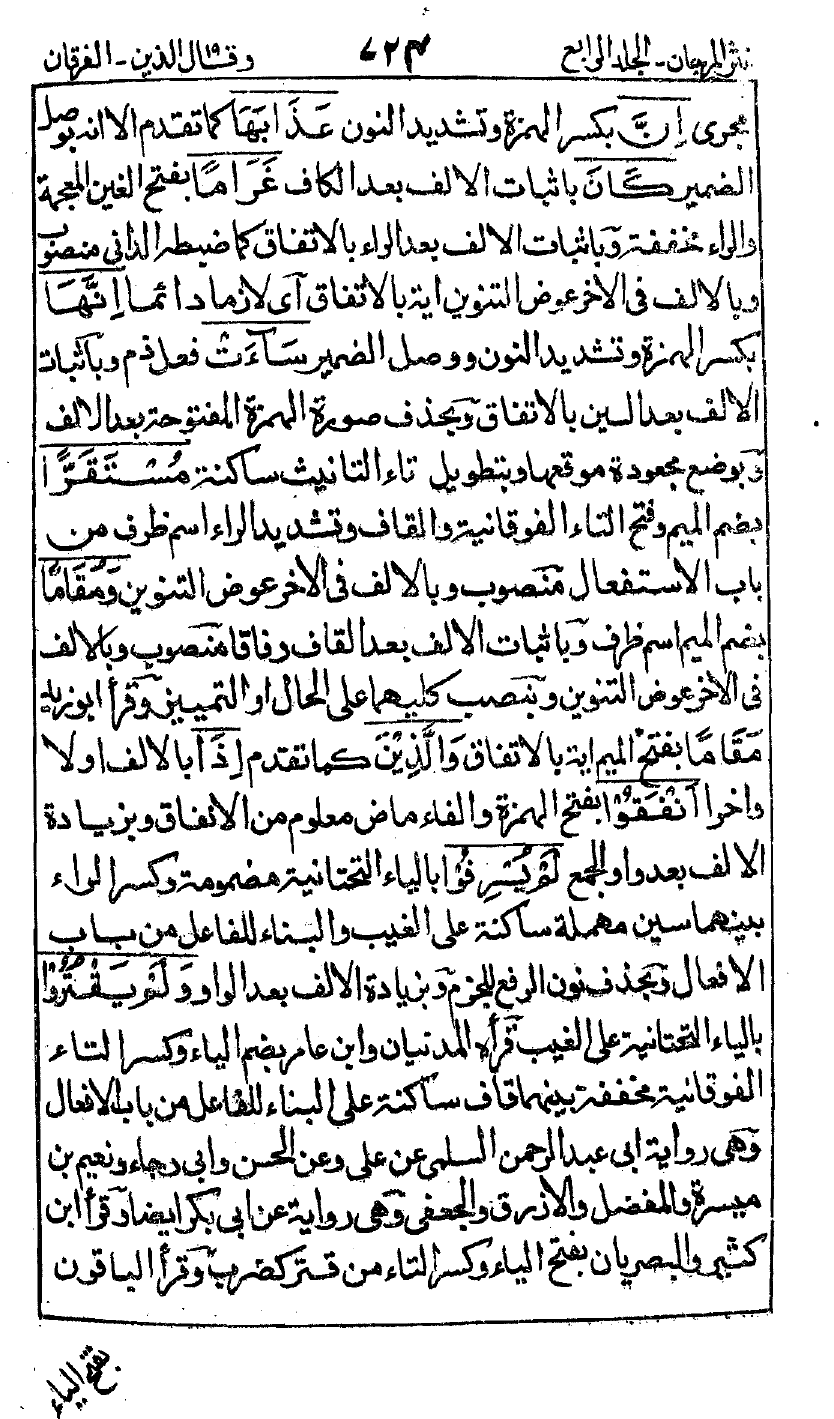 نثر المرجان - الجلد الرابع ٧٢٤ وقال الذين ١٩ - الفرقان
نجوى إِنَّ بكسر الهمزة وتشديد النون عَذَابَهَا كما تقدم الا انه بوصل
الضمير كَانَ باثبات الالف بعد الكاف غَرَامًا بفتح الغين المعجمة
والراء مخففة وباثبات الالف بعد الراء بالاتفاق كما ضبطه الداني منصوب
وبالالف في الاخر عوض التنوين اية بالاتفاق آى لازما دائما إِنَّهَا
بكسر الهمزة وتشديد النون ووصل الضمير سَآءَتْ فعل ذم وباثبات
الالف بعد السين بالاتفاق وبحذف صورة الهمزة المفتوحة بعد الالف
وبوضع مجعودة موقعها وبتطويل تاء التانيث ساكنة مُسْتَقَرًّا
بضم الميم وفتح التاء الفوقانية والقاف وتشديد الراء اسم ظرف من
باب الاستفعال منصوب وبالالف في الاخر عوض التنوين وَمُقَامًا
بضم الميم اسم ظرف وباثبات الالف بعد القاف وفاقا منصوب وبالالف
في الاخر عوض التنوين وبنصب كليهما على الحال او التمييز وقرأ ابو زيد
مَقَامًا بفتح الميم اية بالاتفاق وَالَّذِيْنَ كما تقدم إِذَا بالالف اولا
واخرا أَنْفَقُوْا بفتح الهمزة والفاء ماض معلوم من الانفاق وبزيادة
الالف بعد واو الجمع لَمْ يُسْرِفُوْا بالياء التحتانية مضمومة وكسر الراء
بينهما سين مهملة ساكنة على الغيب والبناء للفاعل من باب
الافعال وبحذف نون الرفع للجزم وبزيادة الالف بعد الواو وَلَمْ يَقْتُرُوْا
بالياء التحتانية على الغيب قرأه المدنيان وابن عامر بضم الياء وكسر التاء
الفوقانية مخففة بينهما قاف ساكنة على البناء للفاعل من باب الافعال
وهى رواية ابى عبد الرحمن السلمى عن على وعن الحسن وابى رجاء ونعيم بن
ميسرة والمفضل والازرق والجعفى وهى رواية عن ابى بكر ايضا وقرأ ابن
كثير والبصريان بفتح الياء وكسر التاء من قتر كضرب وقرأ الباقون
بفتح الياء